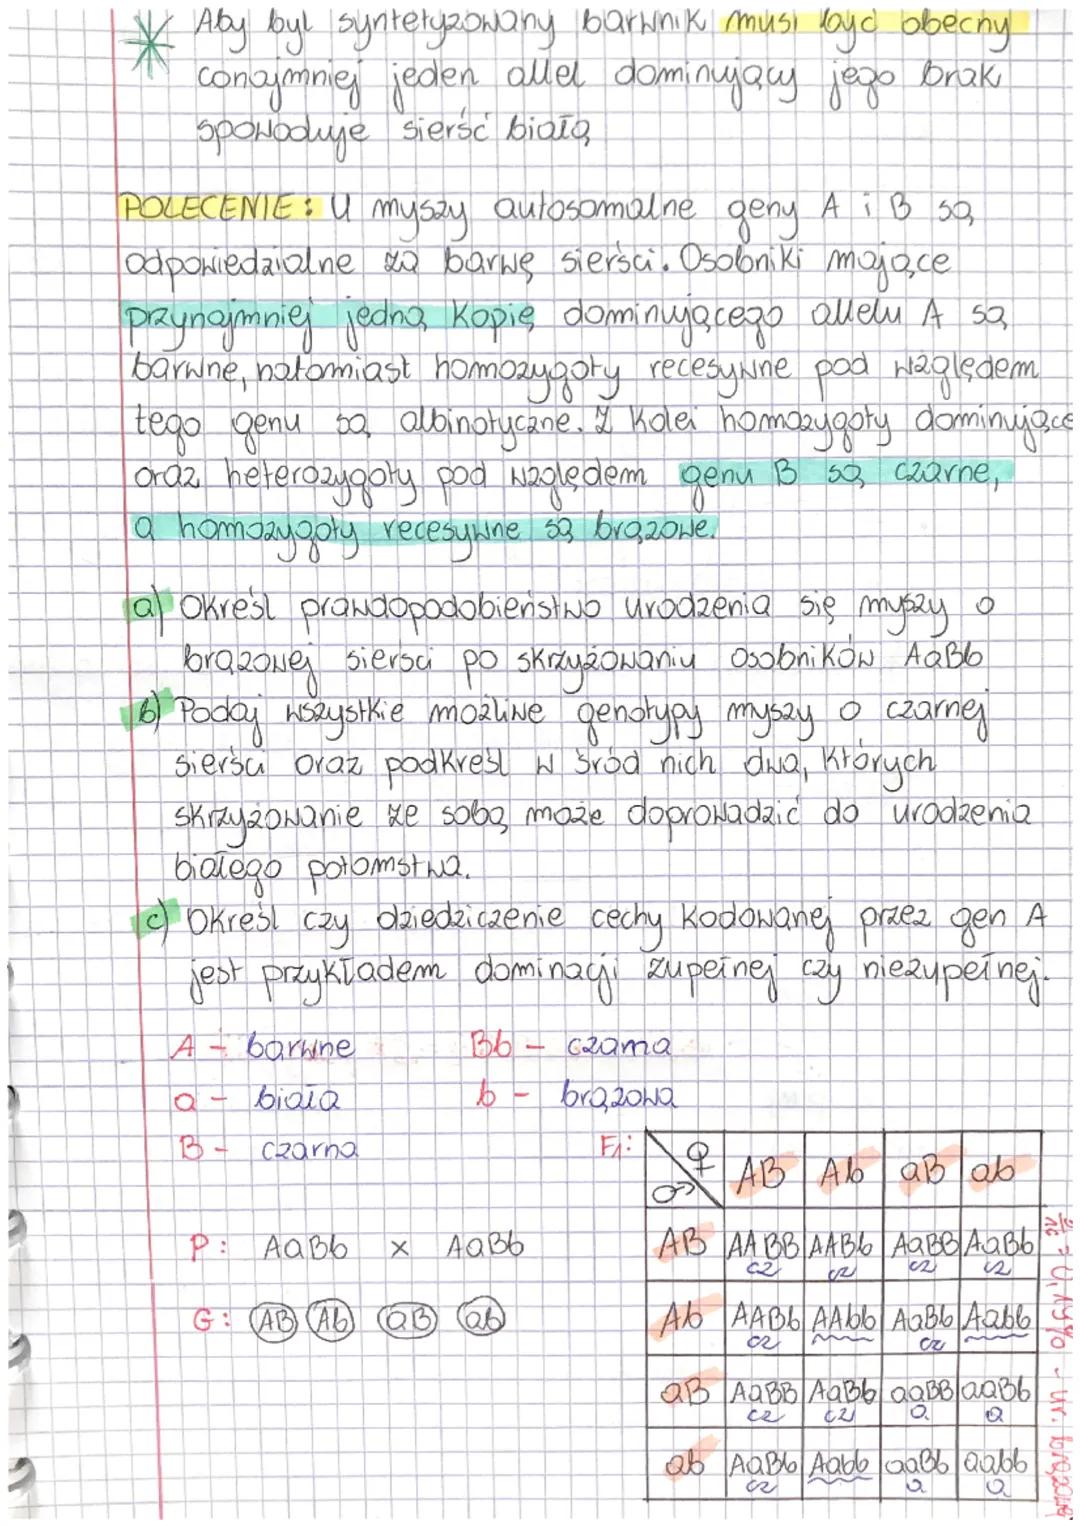 Aby był syntetyzowany barwnik musi być obecny
conajmniej jeden allel dominujący jego brak
spowoduje sierść białą
POLECENIE: U myszy autosomalne geny A i B są
odpowiedzialne za barwę sierści. Osobniki mające
przynajmniej jedną kopię dominującego allelu A są
barwne, natomiast homozygoty recesywne pod względem
tego genu są albinotyczne. Z kolei homozygoty dominujące
oraz heterozygoty pod względem genu B są czarne,
a homozygoty recesywne są brązowe.
a) Określ prawdopodobieństwo urodzenia się myszy o
brązowej sierści po skrzyżowaniu osobników AaBb
b) Podaj wszystkie możliwe genotypy myszy o czarnej
sierści oraz podkreśl w śród nich dwa, których
skrzyżowanie ze sobą może doprowadzić do urodzenia
białego potomstwa.
c) Określ czy dziedziczenie cechy kodowanej przez gen A
jest przykładem dominacji zupełnej czy niezupełnej.
A - barwne Bb - czarna
a - biała b - brązowa
B - czarna F1:
♀ AB Ab aB ab
♂
P: AaBb x AaBb AB AABB AABb AaBB AaBb
cz cz cz cz
G: AB Ab aB ab Ab AABb AAbb AaBb Aabb
cz cz
aB AaBB AaBb aaBB aaBb
cz cz a a
ab AaBb Aabb aaBb aabb
cz a a